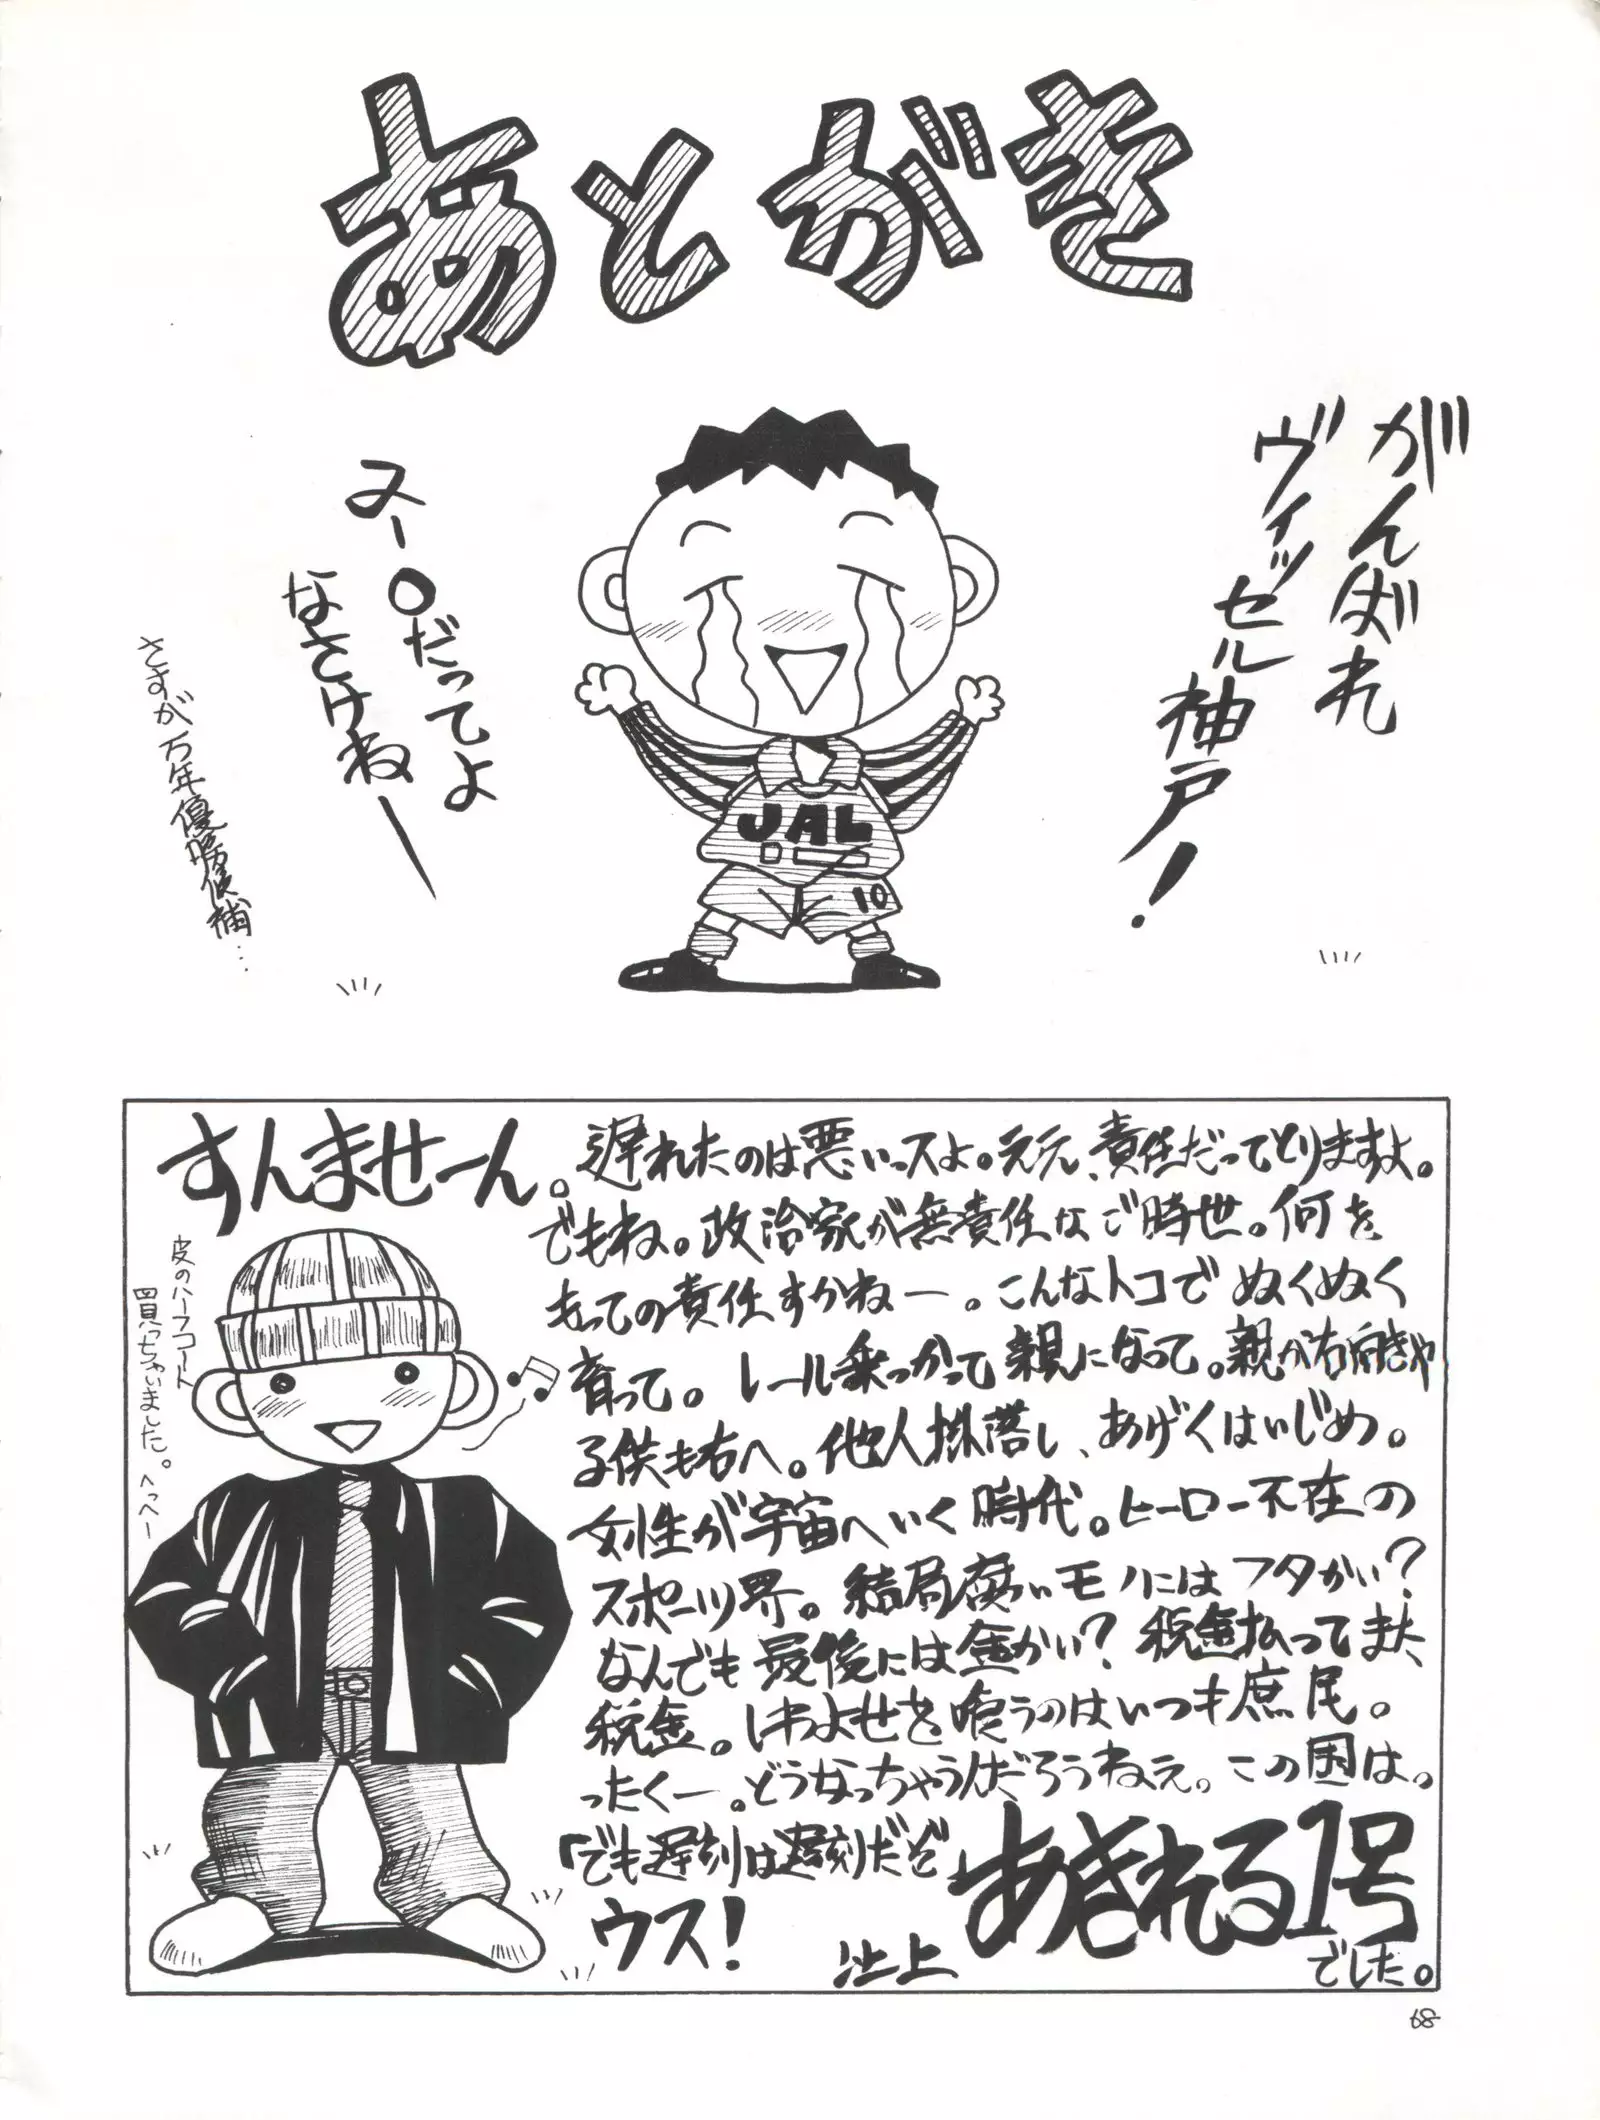 あとがき
がんばれ
ヴィッセル神戸!
又ー〇だってよ
なさけねー
さすが万年優勝候補…
JAL
10
すんませーん。
遅れたのは悪いっスよ。ええ、責任だってとりますよ。
でもね。政治家が無責任なご時世。何を
もっての責任すかねー。こんなトコでぬくぬく
育って。レール乗っかって親になって。親が右向きゃ
子供も右へ。他人蹴落し、あげくはいじめ。
女性が宇宙へいく時代。ヒーロー不在の
スポーツ界。結局腐いモノにはフタかい?
なんでも最後には金かい?税金払ってまた、
税金。しわよせを喰うのはいつも庶民。
ったくー。どうなっちゃうんだろうねえ。この国は。
「でも遅刻は遅刻だぞ」
ウス!
あきれる1号
でした。
皮のハーフコート
買っちゃいました。へっへー
68